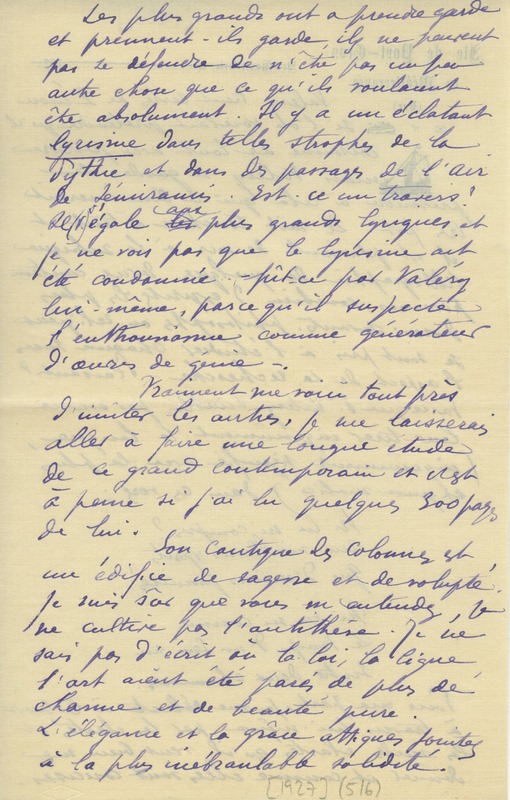 Les plus grands ont a prendre garde
et prennent-ils garde, ils ne peuvent
pas se défendre de n'être pas un peu
autre chose que ce qu'ils voulaient
être absolument. Il y a un éclatant
lyrisme dans telles strophes de la
Pythie et dans des passages de l'air
de Sémiramis. Est-ce un travers?
Il s'égale aux plus grands lyriques et
je ne vois pas que le lyrisme ait
été condamné - fût-ce par Valery
lui-même, parce qu'il suspecte
l'enthousiasme comme générateur
d'œuvres de genie -.
Vraiment me voici tout près
d'imiter les autres, je me laisserais
aller à faire une longue etude
de ce grand contemporain et c'est
à peine si j'ai lu quelques 300 pages
de lui.
Son cantique des colonnes est
un édifice de sagesse et de volupté.
Je suis sûr que vous m'entendez, je
ne cultive pas l'antithèse. Je ne
sais pas d'écrit où la loi, la ligne
l'art aient été parés de plus de
charme et de beauté pure.
L'élégance et la grâce attiques jointes
à la plus inébranlable solidité.
[1927] (5/6)